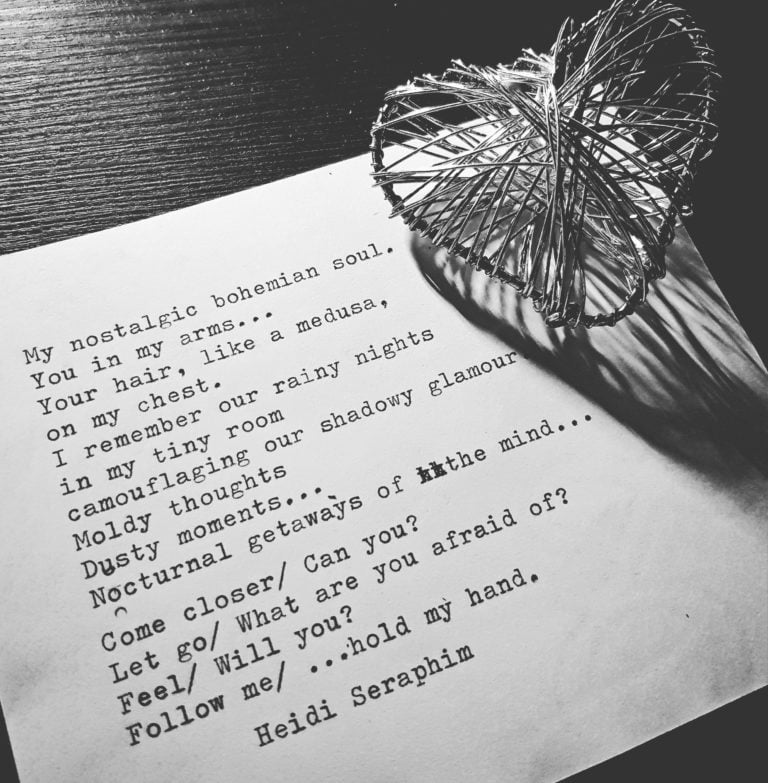 My nostalgic bohemian soul.
You in my arms...
Your hair, like a medusa,
on my chest.
I remember our rainy nights
in my tiny room
camouflaging our shadowy glamour.
Moldy thoughts
Dusty moments...
Nocturnal getaways of the mind...
Come closer/ Can you?
Let go/ What are you afraid of?
Feel/ Will you?
Follow me/ ...hold my hand.
Heidi Seraphim